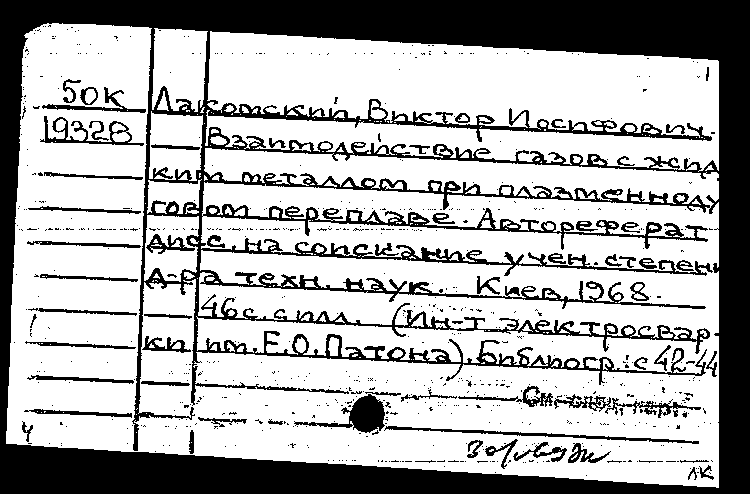 50К Лакомский, Виктор Иосифович.
19328 Взаимодействие газов с жид
ким металлом при плазменноду
говом переплаве. Автореферат
дисс. на соискание учен. степени
д-ра техн. наук. Киев, 1968.
46 с. с илл. (Ин-т электросвар-
ки им. Е.О.Патона). Библиогр.: с 42-44
См.
4
лк